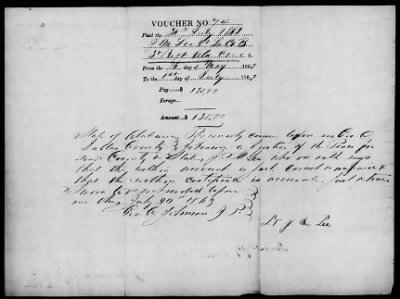 VOUCHER NO. 74
Paid the 20th July 1863
J M Lee Lt Co B
3d Regt Ala Ca C. S.
From the 1st day of May 1863
To the 1st day of July 1863
Pay $ 135,00
Forage
Amount $ 135,00
State of Alabama Personally came before me Geo C
Dallas County Johnson a Justice of the Peace for
said County & State, J M Lee who on oath says
that the within account is just correct and unpaid &
that the within certificate is accurate, just & true
Sworn to & subscribed before
me this July 20th 1863
Geo C Johnson J P
Lt J M Lee